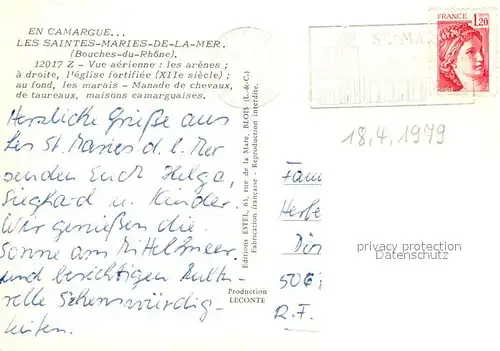 EN CAMARGUE...
LES SAINTES-MARIES-DE-LA-MER.
(Bouches-du-Rhône).
12017 Z - Vue aérienne : les arènes ;
à droite, l'église fortifiée (XIIe siècle) ;
au fond, les marais - Manade de chevaux,
de taureaux, maisons camarguaises.
Herzliche Grüße aus
Les St. Maries d. l. Mer
senden Euch Helga,
Sieghard u. Kinder.
Wir genießen die
Sonne am Mittelmeer
und besichtigen Kultu-
relle Sehenswürdig-
keiten.
Editions ESTEL, 65, rue de la Mare, BLOIS (L.-&-C.)
Fabrication française - Reproduction interdite.
Production
LECONTE
FRANCE
1,20
POSTES
18.4.1979
Fam
Herbe
506
R.F.
privacy protection
Datenschutz